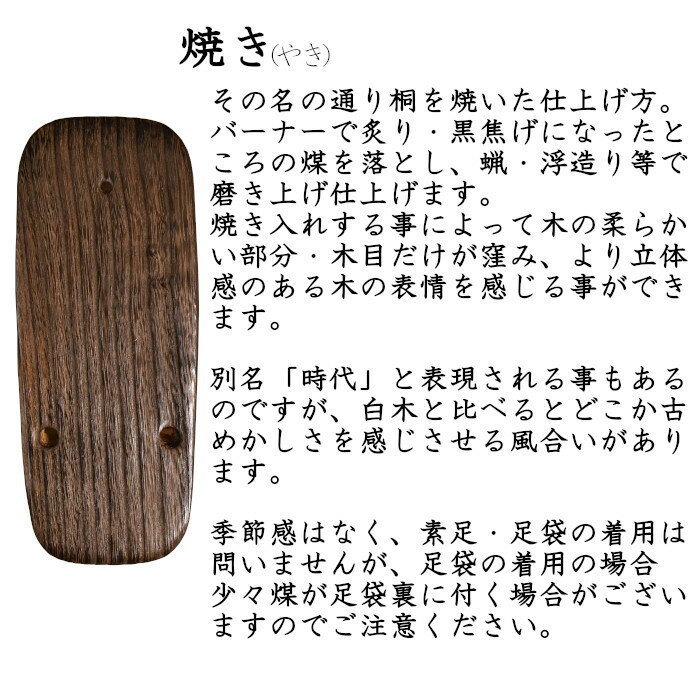 焼き(やき)
その名の通り桐を焼いた仕上げ方。
バーナーで炙り・黒焦げになったと
ころの煤を落とし、蝋・浮造り等で
磨き上げ仕上げます。
焼き入れする事によって木の柔らか
い部分・木目だけが窪み、より立体
感のある木の表情を感じる事ができ
ます。
別名「時代」と表現される事もある
のですが、白木と比べるとどこか古
めかしさを感じさせる風合いがあり
ます。
季節感はなく、素足・足袋の着用は
問いませんが、足袋の着用の場合
少々煤が足袋裏に付く場合がござい
ますのでご注意ください。